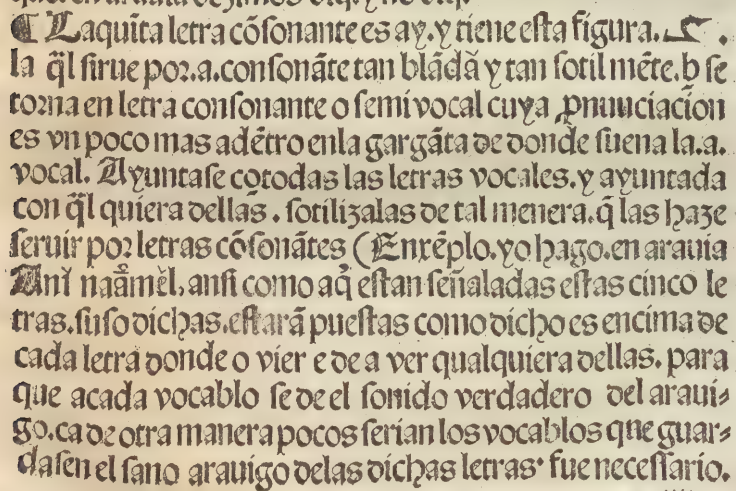 ¶ La quĩta letra cõsonante es ay. y tiene esta figura. ـع .
la q̃l sirue por. a. consonãte tan blãdã y tan sotil mẽte. q̃ se
torna en letra consonante o semi vocal cuya ꝓnunciacion
es vn poco mas adẽtro enla gargãta de donde suena la. a.
vocal. Ayuntase cõ todas las letras vocales. y ayuntada
con q̃l quiera dellas. sotilizalas de tal menera. q̃ las haze
seruir por letras cõsonãtes (Enxẽplo. yo hago. en arauia
Anĩ naåmẽl, ansi como aq̃ estan señaladas estas cinco le
tras. suso dichas. estarã puestas como dicho es encima de
cada letra donde o vier e de a ver qualquiera dellas. para
que acada vocablo se de el sonido verdadero del araui⸗
go. ca de otra manera pocos serian los vocablos que guar⸗
dasen el sano arauigo delas dichas letras· fue necessario.